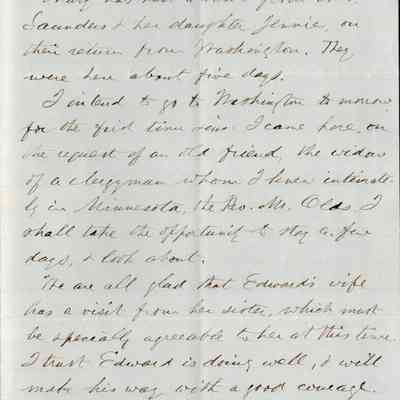 Mary has had a visit from Mrs.
Saunders & her daughter Jennie, on
their return from Washington. They
were here about five days.
I intend to go to Washington to morrow
for the first time since I came here, on
the request of an old friend, the widow
of a clergyman whom I knew intimate-
ly in Minnesota, the Rev. Mr. Olds. I
shall take the opportunity to stay a few
days, & look about.
We are all glad that Edward's wife
has a visit from her sister, which must
be specially agreeable to her at this time.
I trust Edward is doing well, & will
make his way with a good courage.